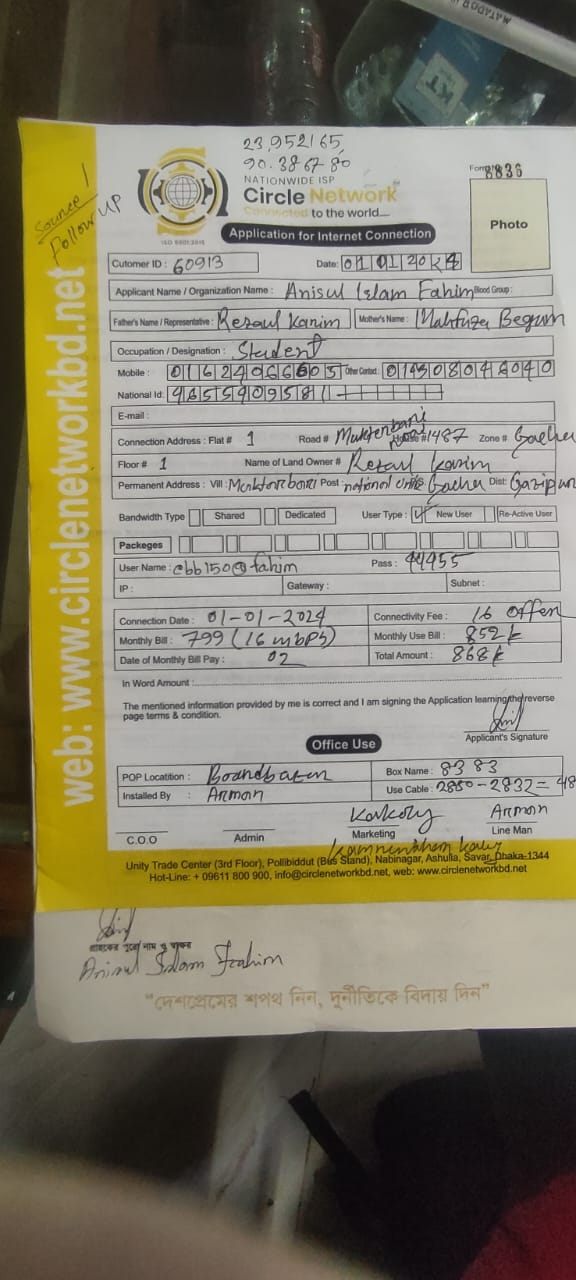 MATADOR
KT
23.952165,
90.386780
Source 1
Follow UP
ISO 9001:2015
NATIONWIDE ISP
Circle Network
Connected to the world...
Form # 8836
Photo
Application for Internet Connection
Cutomer ID : 60913 Date: 01 01 2024
Applicant Name / Organization Name : Anisul Islam Fahim Blood Group:
Father's Name / Representative : Rezaul Karim Mother's Name : Mahfuza Begum
Occupation / Designation : Student
Mobile : Other Contact :
National Id: 4655409581
E-mail :
Connection Address : Flat # 1 Road # House # 1487 Zone # Gacha
Floor # 1 Name of Land Owner # Rezaul Karim
Permanent Address : Vill : Post : national Gacha Dist: Gazipur
Bandwidth Type Shared Dedicated User Type : New User Re-Active User
Packeges
User Name : cbb150@fahim Pass : 44455
IP : Gateway : Subnet :
Connection Date : 01-01-2024 Connectivity Fee : 16 Offer
Monthly Bill : 799 (16 mbps) Monthly Use Bill : 852
Date of Monthly Bill Pay : 02 Total Amount : 868
In Word Amount :
The mentioned information provided by me is correct and I am signing the Application learning the reverse
page terms & condition.
Applicant's Signature
Office Use
POP Locatition : Boardbazar Box Name : 8383
Installed By : Arman Use Cable : 2880-2832=48
Kakoly Arman
C.O.O Admin Marketing Line Man
Unity Trade Center (3rd Floor), Pollibiddut (Bus Stand), Nabinagar, Ashulia, Savar, Dhaka-1344
Hot-Line: + 09611 800 900, info@circlenetworkbd.net, web: www.circlenetworkbd.net
web: www.circlenetworkbd.net
গ্রাহকের পুরো নাম ও স্বাক্ষর
Anisul Islam Fahim
"দেশপ্রেমের শপথ নিন, দুর্নীতিকে বিদায় দিন"